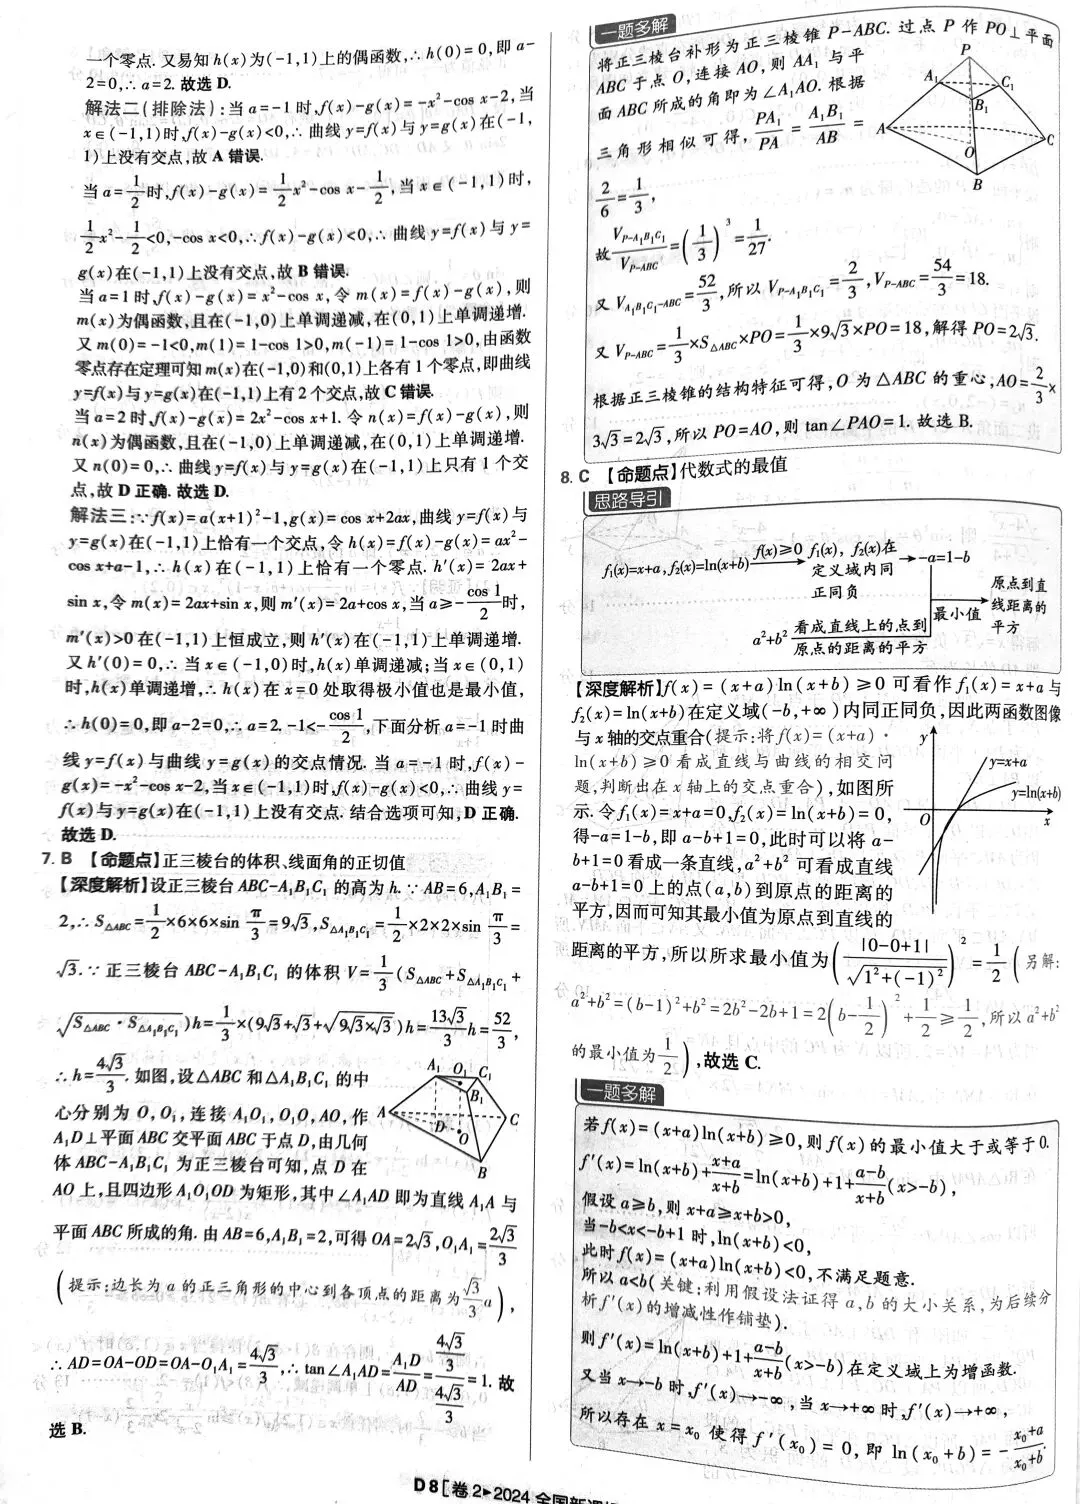 一个零点. 又易知 h(x)为(-1,1)上的偶函数,∴h(0)=0,即 a-
2=0,∴a=2. 故选 D.
解法二(排除法):当 a=-1 时,f(x)-g(x)=-x²-cos x-2,当
x∈(-1,1)时,f(x)-g(x)<0,∴曲线 y=f(x)与 y=g(x)在(-1,
1)上没有交点,故 A 错误.
当 a=1/2时,f(x)-g(x)=1/2x²-cos x-1/2,当 x∈(-1,1)时,
1/2x²-1/2<0,-cos x<0,∴f(x)-g(x)<0,∴曲线 y=f(x)与 y=
g(x)在(-1,1)上没有交点,故 B 错误.
当 a=1 时,f(x)-g(x)=x²-cos x,令 m(x)=f(x)-g(x),则
m(x)为偶函数,且在(-1,0)上单调递减,在(0,1)上单调递增.
又 m(0)=-1<0,m(1)=1-cos 1>0,m(-1)=1-cos 1>0,由函数
零点存在定理可知 m(x)在(-1,0)和(0,1)上各有 1 个零点,即曲线
y=f(x)与 y=g(x)在(-1,1)上有 2 个交点,故 C 错误.
当 a=2 时,f(x)-g(x)=2x²-cos x+1. 令 n(x)=f(x)-g(x),则
n(x)为偶函数,且在(-1,0)上单调递减,在(0,1)上单调递增.
又 n(0)=0,∴曲线 y=f(x)与 y=g(x)在(-1,1)上只有 1 个交
点,故 D 正确. 故选 D.
解法三:∵f(x)=a(x+1)²-1,g(x)=cos x+2ax,曲线 y=f(x)与
y=g(x)在(-1,1)上恰有一个交点,令 h(x)=f(x)-g(x)=ax²-
cos x+a-1,∴h(x)在(-1,1)上恰有一个零点. h′(x)=2ax+
sin x,令 m(x)=2ax+sin x,则 m′(x)=2a+cos x,当 a≥-cos 1/2时,
m′(x)>0 在(-1,1)上恒成立,则 h′(x)在(-1,1)上单调递增.
又 h′(0)=0,∴当 x∈(-1,0)时,h(x)单调递减;当 x∈(0,1)
时,h(x)单调递增,∴h(x)在 x=0 处取得极小值也是最小值,
∴h(0)=0,即 a-2=0,∴a=2. -1<-cos 1/2,下面分析 a=-1 时曲
线 y=f(x)与曲线 y=g(x)的交点情况. 当 a=-1 时,f(x)-
g(x)=-x²-cos x-2,当 x∈(-1,1)时,f(x)-g(x)<0,∴曲线 y=
f(x)与 y=g(x)在(-1,1)上没有交点. 结合选项可知,D 正确.
故选 D.
7. B 【命题点】正三棱台的体积、线面角的正切值
【深度解析】设正三棱台 ABC-A₁B₁C₁ 的高为 h. ∵AB=6,A₁B₁=
2,∴S△ABC=1/2×6×6×sin π/3=9√3,S△A₁B₁C₁=1/2×2×2×sin π/3=
√3. ∵正三棱台 ABC-A₁B₁C₁ 的体积 V=1/3(S△ABC+S△A₁B₁C₁+
√(S△ABC·S△A₁B₁C₁))h=1/3×(9√3+√3+√(9√3×√3))h=13√3/3h=52/3,
∴h=4√3/3. 如图,设△ABC 和△A₁B₁C₁ 的中
心分别为 O,O₁,连接 A₁O₁,O₁O,AO,作
A₁D⊥平面 ABC 交平面 ABC 于点 D,由几何
体 ABC-A₁B₁C₁ 为正三棱台可知,点 D 在
AO 上,且四边形 A₁O₁OD 为矩形,其中∠A₁AD 即为直线 A₁A 与
平面 ABC 所成的角. 由 AB=6,A₁B₁=2,可得 OA=2√3,O₁A₁=2√3/3
(提示:边长为 a 的正三角形的中心到各顶点的距离为√3/3a),
∴AD=OA-OD=OA-O₁A₁=4√3/3,∴tan∠A₁AD=A₁D/AD=(4√3/3)/(4√3/3)=1. 故
选 B.
A₁ O₁ C₁
B₁
A D O C
B
一题多解
将正三棱台补形为正三棱锥 P-ABC. 过点 P 作 PO⊥平面
ABC 于点 O,连接 AO,则 AA₁ 与平
面 ABC 所成的角即为∠A₁AO. 根据
三角形相似可得,PA₁/PA=A₁B₁/AB=
2/6=1/3,
故V_P-A₁B₁C₁/V_P-ABC=(1/3)³=1/27.
又 V_A₁B₁C₁-ABC=52/3,所以 V_P-A₁B₁C₁=2/3,V_P-ABC=54/3=18.
又 V_P-ABC=1/3×S△ABC×PO=1/3×9√3×PO=18,解得 PO=2√3.
根据正三棱锥的结构特征可得,O 为△ABC 的重心,AO=2/3×
3√3=2√3,所以 PO=AO,则 tan∠PAO=1. 故选 B.
P
A₁ C₁
B₁
A C
O
B
8. C 【命题点】代数式的最值
思路导引
f₁(x)=x+a,f₂(x)=ln(x+b) f(x)≥0 f₁(x),f₂(x)在定义域内同正同负 -a=1-b
a²+b² 看成直线上的点到原点的距离的平方 最小值 原点到直线距离的平方
【深度解析】f(x)=(x+a)ln(x+b)≥0 可看作 f₁(x)=x+a 与
f₂(x)=ln(x+b)在定义域(-b,+∞)内同正同负,因此两函数图像
与 x 轴的交点重合(提示:将 f(x)=(x+a)·
ln(x+b)≥0 看成直线与曲线的相交问
题,判断出在 x 轴上的交点重合),如图所
示. 令 f₁(x)=x+a=0,f₂(x)=ln(x+b)=0,
得-a=1-b,即 a-b+1=0,此时可以将 a-
b+1=0 看成一条直线,a²+b² 可看成直线
a-b+1=0 上的点(a,b)到原点的距离的
平方,因而可知其最小值为原点到直线的
距离的平方,所以所求最小值为(|0-0+1|/√(1²+(-1)²))²=1/2(另解:
a²+b²=(b-1)²+b²=2b²-2b+1=2(b-1/2)²+1/2≥1/2,所以 a²+b²
的最小值为1/2),故选 C.
y
y=x+a
y=ln(x+b)
O x
一题多解
若 f(x)=(x+a)ln(x+b)≥0,则 f(x)的最小值大于或等于 0.
f′(x)=ln(x+b)+x+a/x+b=ln(x+b)+1+a-b/x+b(x>-b),
假设 a≥b,则 x+a≥x+b>0,
当-b<x<-b+1 时,ln(x+b)<0,
此时 f(x)=(x+a)ln(x+b)<0,不满足题意.
所以 a<b(关键:利用假设法证得 a,b 的大小关系,为后续分
析 f′(x)的增减性作铺垫).
则 f′(x)=ln(x+b)+1+a-b/x+b(x>-b)在定义域上为增函数.
又当 x→-b 时,f′(x)→-∞,当 x→+∞ 时,f′(x)→+∞,
所以存在 x=x₀ 使得 f′(x₀)=0,即 ln(x₀+b)=-x₀+a/x₀+b.
D 8 [卷 2▶2024 全国新课标